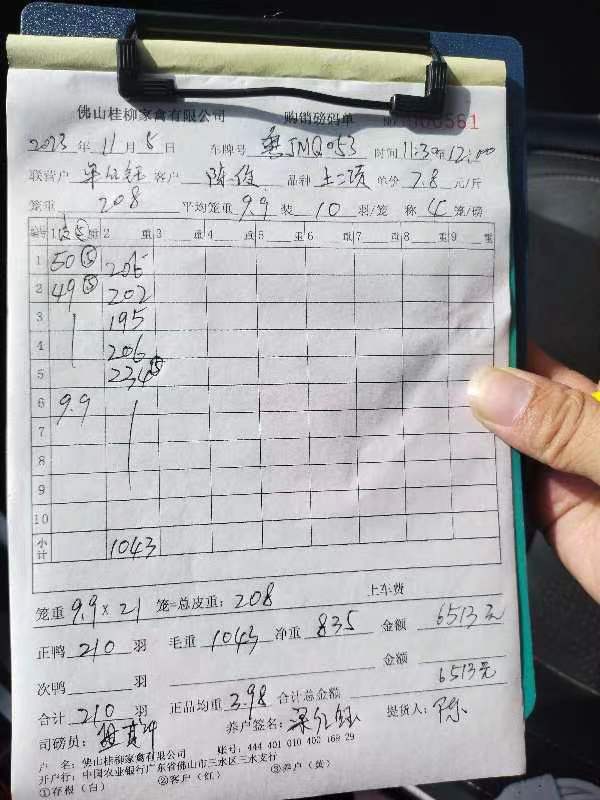 佛山桂柳家禽有限公司 购销磅码单 №
2023年11月5日 车牌号 粤JMQ053 时间11:30至12:00
联营户 客户 陈 品种 土二项 单价 7.8 元/斤
笼重 208 平均笼重 9.9 装 10 羽/笼 称 4 笼/磅
编号 1 2 重 3 重 4 重 5 重 6 重 7 重 8 重 9 重
1 50⑤ 205
2 49⑤ 202
3 195
4 206
5 234⑤
6 9.9
7
8
9
10
小计 1043
笼重 9.9×21 笼=总皮重: 208 上车费
正鸭 210 羽 毛重 1043 净重 835 金额 6513元
次鸭 羽 金额 6513元
合计 210 羽 正品均重 3.98 合计总金额
司磅员: 养户签名: 提货人:
户 名: 佛山桂柳家禽有限公司 账号: 444 401 010 400 169 29
开户行: 中国农业银行广东省佛山市三水区三水支行
①存根(白) ②客户(红) ③养户(黄)